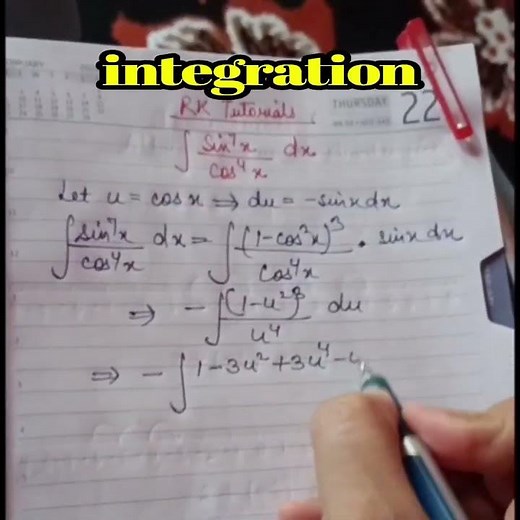 integration
RK Tutorials
THURSDAY 22
∫ sin⁷x / cos⁴x dx
Let u = cos x ⟹ du = -sinx dx
∫ sin⁷x / cos⁴x dx = ∫ (1-cos²x)³ / cos⁴x · sinx dx
⟹ -∫ (1-u²)³ / u⁴ du
⟹ -∫ 1-3u²+3u⁴-